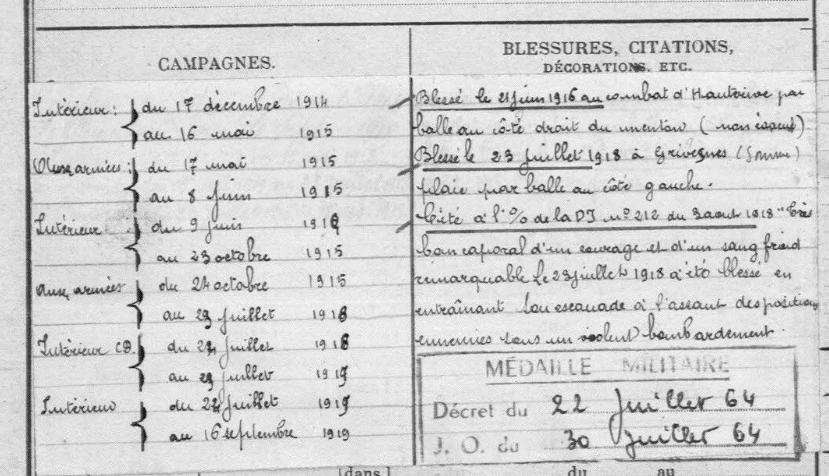 CAMPAGNES.
Intérieur : du 17 décembre 1914
au 16 mai 1915
Aux armées : du 17 mai 1915
au 8 juin 1915
Intérieur du 9 juin
au 23 octobre 1915
aux armées du 24 octobre 1915
au 23 juillet 1918
Intérieur CD. du 24 juillet 1918
au 23 juillet 1919
Intérieur du 24 juillet 1919
au 16 septembre 1919
BLESSURES, CITATIONS,
DÉCORATIONS, ETC.
Blessé le 21 juin 1916 au combat d'Hautvine par
balle au côté droit du menton (non évacué)
Blessé le 23 juillet 1918 à Grivesnes (Somme)
plaie par balle au côté gauche.
Cité à l'O/ de la DI n° 212 du 3 aout 1918 "très
bon caporal d'un courage et d'un sang froid
remarquable Le 23 juillet 1918 a été blessé en
entraînant son escouade à l'assaut des positions
ennemies sous un violent bombardement.
MÉDAILLE MILITAIRE
Décret du 22 juillet 64
J. O. du 30 juillet 64
dans
du au